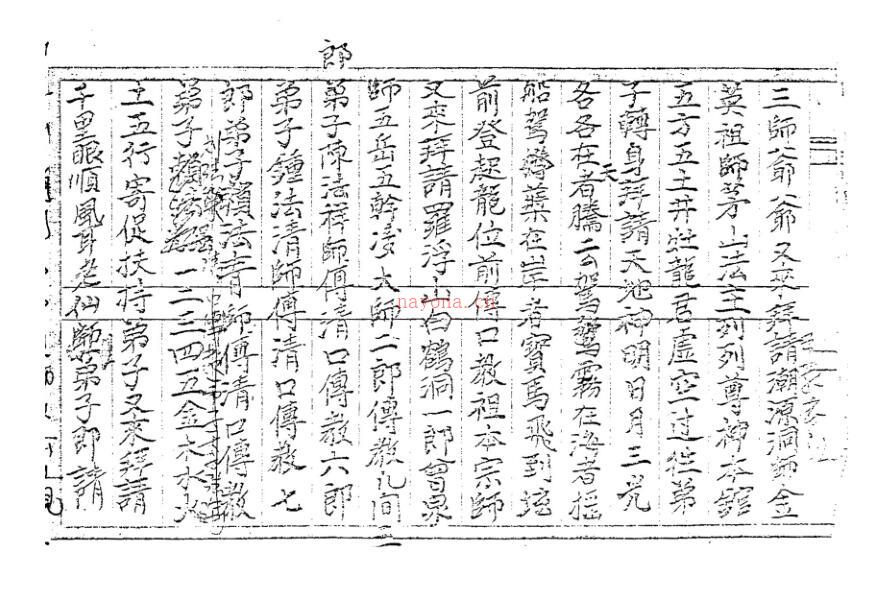 三師公爺公爺又來拜請潮源洞師金
英祖師茅山法主列列尊神本館
五方五土井灶龍君虛空過往弟
子轉身拜請天地神明日月三光
各各在天者騰雲駕鶴霧在海者搖
船駕槳在岸者寶馬飛到壇
前登超龍位前傳口教祖本宗師
又來拜請羅浮山白鶴洞一郎曾泉
師五岳五幹凌大師二郎傳教九间三
郎弟子陳法祥師傅清口傳教六郎
弟子鍾法清師傅清口傳教七
郎弟子賴法青師傅清口傳教
弟子賴法 一二三四五金木水火
土五行寄促扶持弟子又來拜請
千里眼順風耳老仙師弟子郎請
nayona.cn